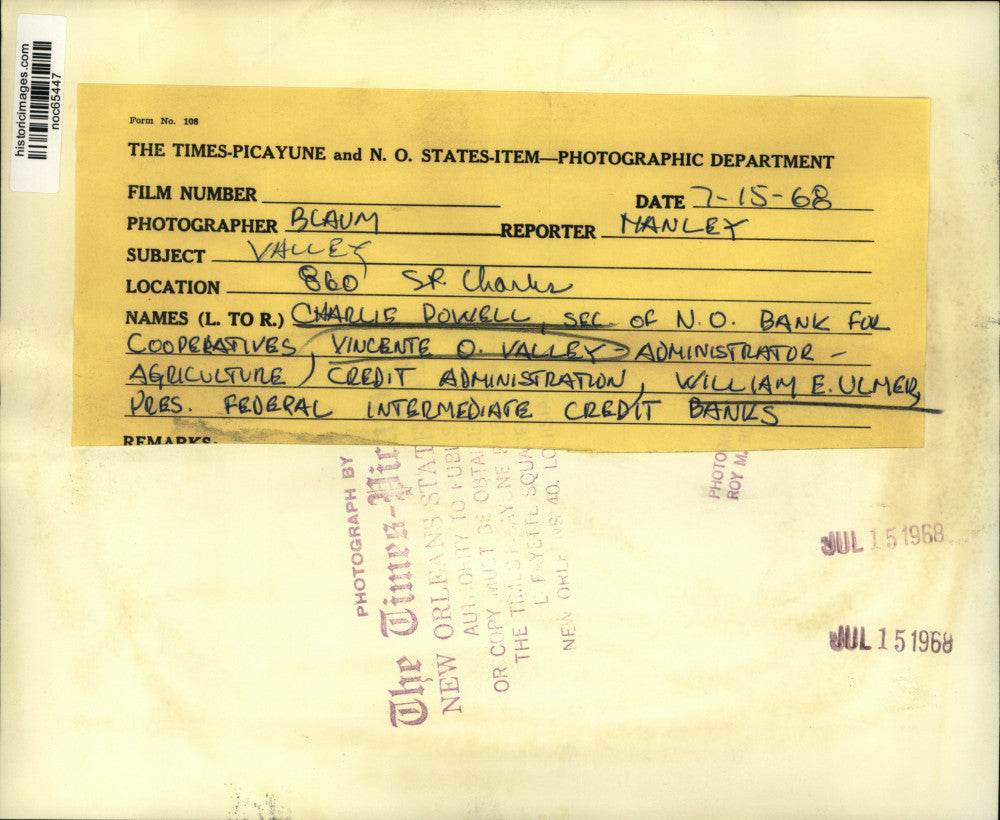 historicimages.com
noc65447
Form No. 108
THE TIMES-PICAYUNE and N. O. STATES-ITEM—PHOTOGRAPHIC DEPARTMENT
FILM NUMBER
DATE 7-15-68
PHOTOGRAPHER BLAUM
REPORTER MANLEY
SUBJECT VALLEY
LOCATION 860 St. Charles
NAMES (L. TO R.) CHARLIE POWELL, SEC. OF N.O. BANK FOR
COOPERATIVES, VINCENTE O. VALLEY ADMINISTRATOR -
AGRICULTURE CREDIT ADMINISTRATION, WILLIAM E. ULMER,
PRES. FEDERAL INTERMEDIATE CREDIT BANKS
REMARKS:
PHOTOGRAPH BY
The Times-Pic
NEW ORLEANS STAT
AUTHORITY TO PUBL
OR COPY MUST BE OBTAI
THE TIMES-PICAYUNE
LAFAYETTE SQUA
NEW ORLEANS 40, LO
PHOTO
ROY M
JUL 15 1968
JUL 15 1968